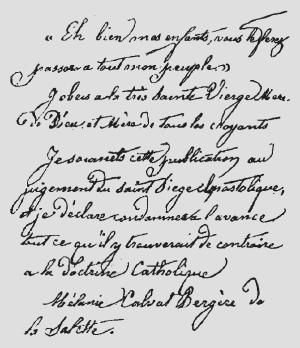 « Eh bien mes enfants, vous le ferez
passer a tout mon peuple. »
J'obeis a la très Sainte Vierge Mère
de Dieu, et Mère de tous les croyants
Je soumets cette publication au
jugement du saint Siege Apostolique,
et je déclare condamner a l'avance
tout ce qu'il y trouverait de contraire
a la doctrine Catholique
Mélanie Calvat Bergère de
la Salette.